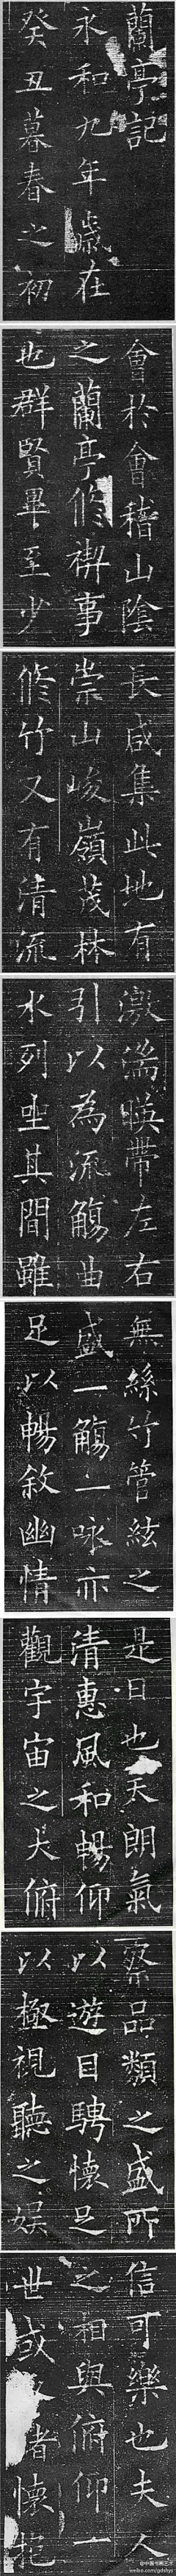 蘭亭記
永和九年歲在
癸丑暮春之初
會於會稽山陰
之蘭亭修禊事
也群賢畢至少
長咸集此地有
崇山峻嶺茂林
修竹又有清流
激湍暎帶左右
引以為流觴曲
水列坐其間雖
無絲竹管絃之
盛一觴一咏亦
足以暢敘幽情
是日也天朗氣
清惠風和暢仰
觀宇宙之大俯
察品類之盛所
以遊目騁懷足
以極視聽之娛
信可樂也夫人
之相與俯仰一
世或諸懷抱
weibo.com/gdshys